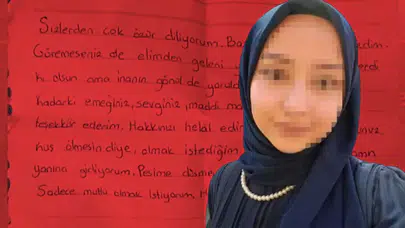 Sizlerden çok özür diliyorum. Ba
Göremeseniz de elimden geleni
ki olsun ama inanın gönül de yoruldu
kadarki emeğiniz, sevginiz, maddi ma
teşekkür ederim. Hakkınızı helal edin
kuş ölmesin diye, olmak istediğim
yanına gidiyorum. Peşime
Sadece mutlu olmak istiyorum.